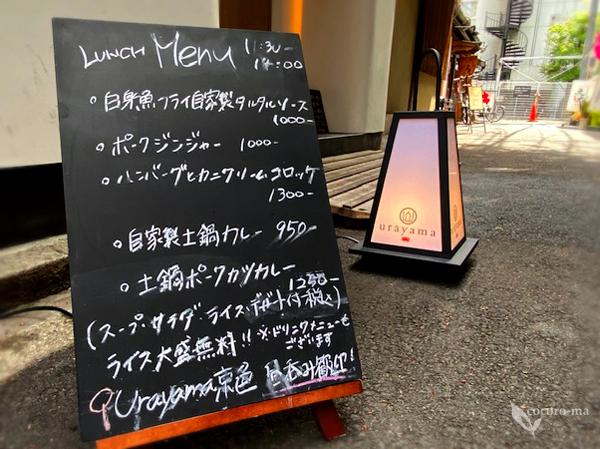 LUNCH Menu 11:30-
14:00
。白身魚フライ自家製タルタルソース
1000-
。ポークジンジャー 1000-
。ハンバーグとカニクリームコロッケ
1300-
。自家製土鍋カレー 950-
。土鍋ポークカツカレー
1250-
(スープ・サラダ・ライス・デザート付 税込)
ライス大盛無料!! ※ドリンクメニューも
ございます
Urayama京色 昼呑み歓迎!
urayama
cocoro-ma